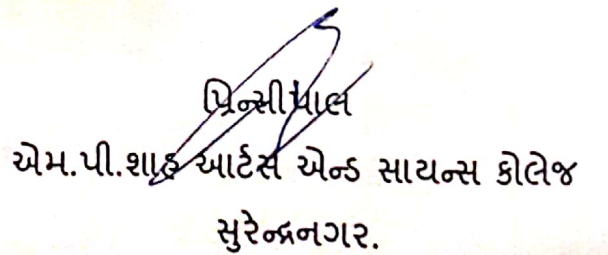 પ્રિન્સીપાલ
એમ.પી.શાહ આર્ટસ એન્ડ સાયન્સ કોલેજ
સુરેન્દ્રનગર.